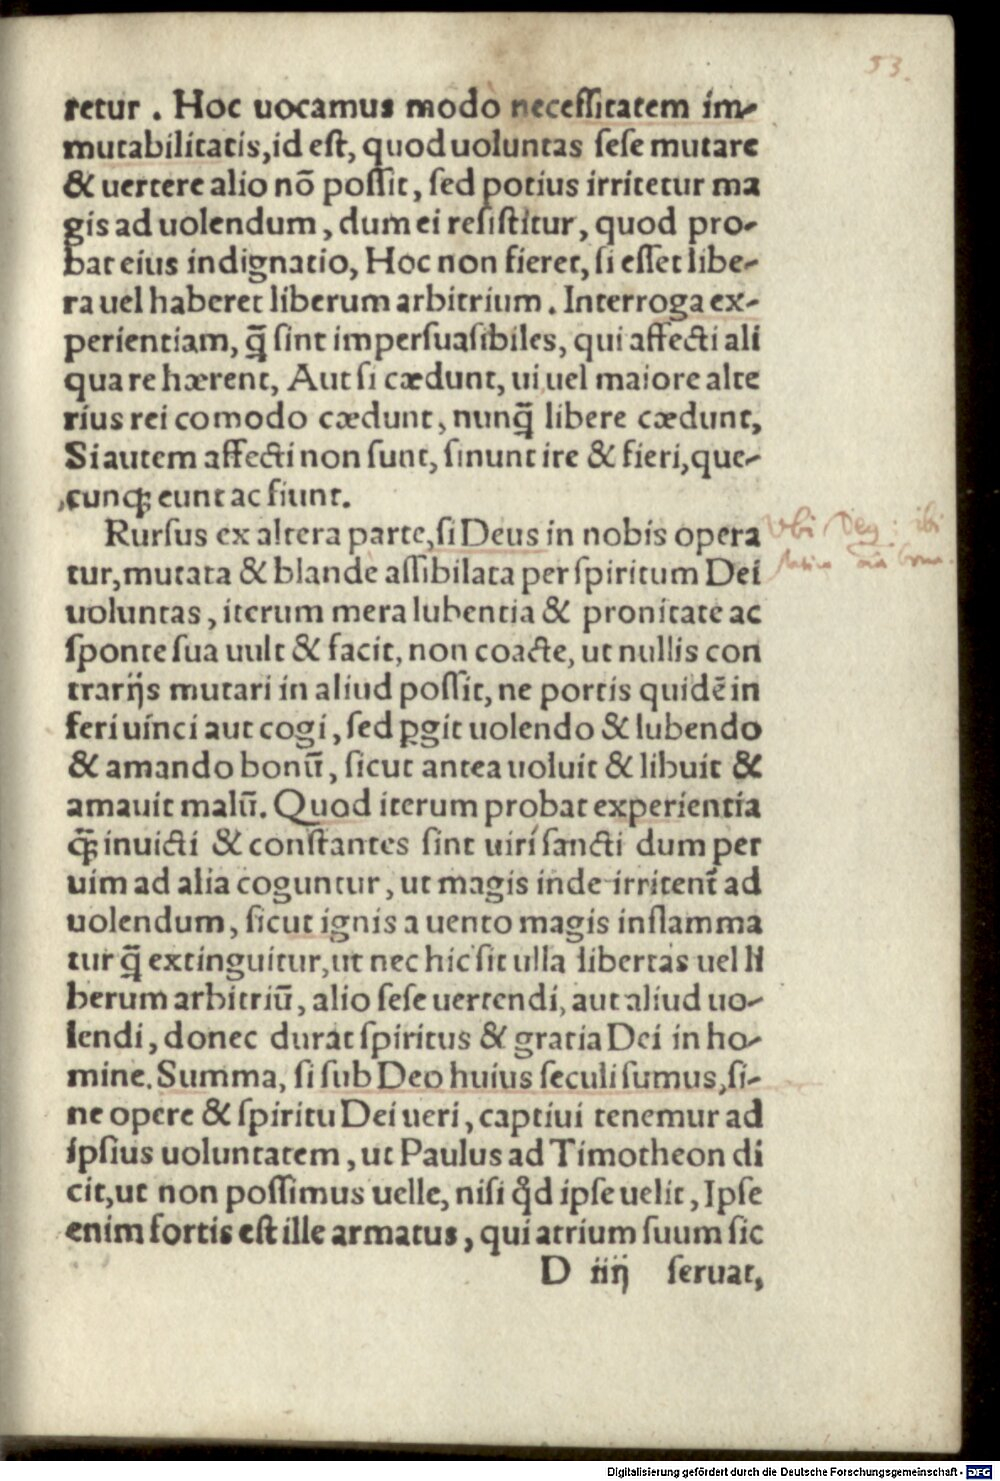 53.
retur . Hoc uocamus modo necessitatem im-
mutabilitatis, id est, quod uoluntas sese mutare
& uertere alio nõ possit, sed potius irritetur ma
gis ad uolendum, dum ei resistitur, quod pro-
bat eius indignatio, Hoc non fieret, si esset libe-
ra uel haberet liberum arbitrium. Interroga ex-
perientiam, q̃ sint impersuasibiles, qui affecti ali
qua re hærent, Aut si cædunt, ui uel maiore alte
rius rei comodo cædunt, nunq̃ libere cædunt,
Si autem affecti non sunt, sinunt ire & fieri, que-
cunqꝫ eunt ac fiunt.
Rursus ex altera parte, si Deus in nobis opera
tur, mutata & blandè assibilata per spiritum Dei
uoluntas, iterum mera lubentia & pronitate ac
sponte sua uult & facit, non coacte, ut nullis con
trarijs mutari in aliud possit, ne portis quidẽ in
feri uinci aut cogi, sed ꝑgit uolendo & lubendo
& amando bonũ, sicut antea uoluit & libuit &
amauit malũ. Quod iterum probat experientia
q̃ꝫ inuicti & constantes sint uiri sancti dum per
uim ad alia coguntur, ut magis inde irritent̃ ad
uolendum, sicut ignis a uento magis inflamma
tur q̃ extinguitur, ut nec hic sit ulla libertas uel li
berum arbitriũ, alio sese uertendi, aut aliud uo-
lendi, donec durat spiritus & gratia Dei in ho-
mine. Summa, si sub Deo huius seculi sumus, si-
ne opere & spiritu Dei ueri, captiui tenemur ad
ipsius uoluntatem, ut Paulus ad Timotheon di
cit, ut non possimus uelle, nisi qđ ipse uelit, Ipse
enim fortis est ille armatus, qui atrium suum sic
D iiij seruat,
Vbi : ibi
Digitalisierung gefördert durch die Deutsche Forschungsgemeinschaft - DFG